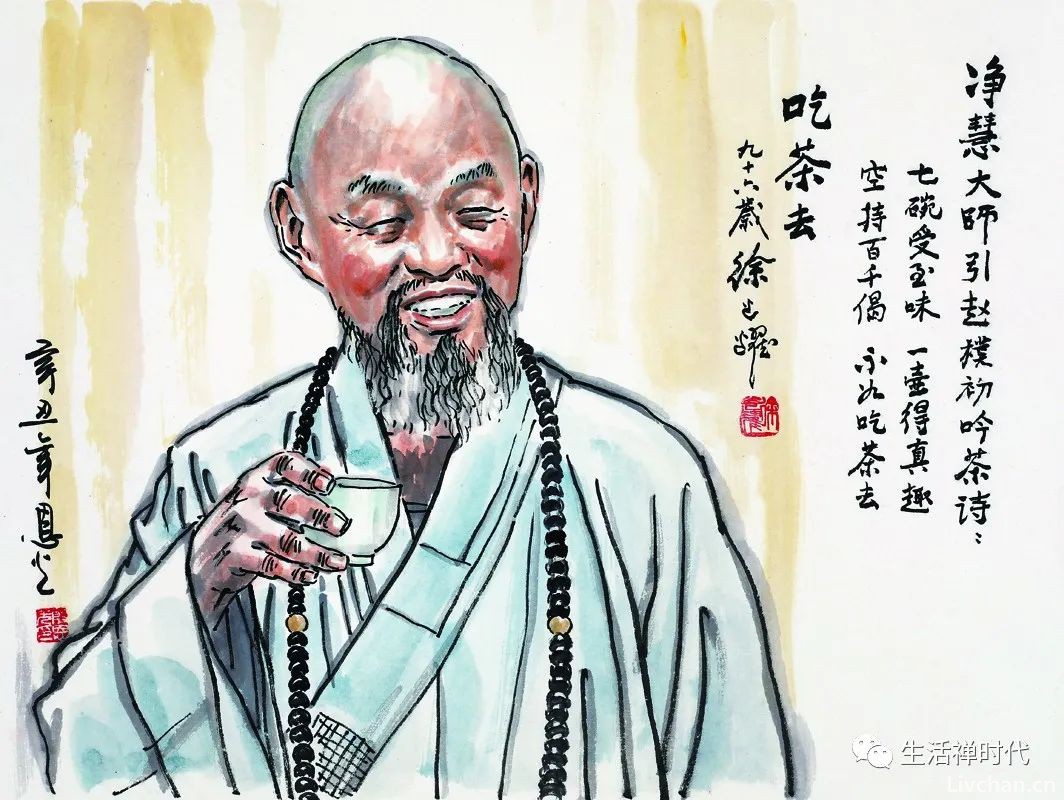 净慧大师引赵樸初吟茶诗：
七碗受至味 一壶得真趣
空持百千偈 不如吃茶去
吃茶去
九十六岁 徐
辛丑年 恩
生活禅时代
Livchan.cn